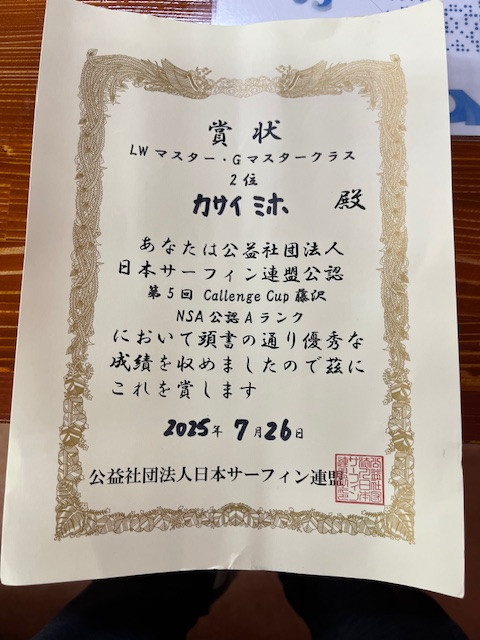 賞状
LWマスター・Gマスタークラス
2位
カサイ ミホ 殿
あなたは公益社団法人
日本サーフィン連盟公認
第5回 Callenge Cup 藤沢
NSA公認Aランク
において頭書の通り優秀な
成績を収めましたので茲に
これを賞します
2025年7月26日
公益社団法人日本サーフィン連盟